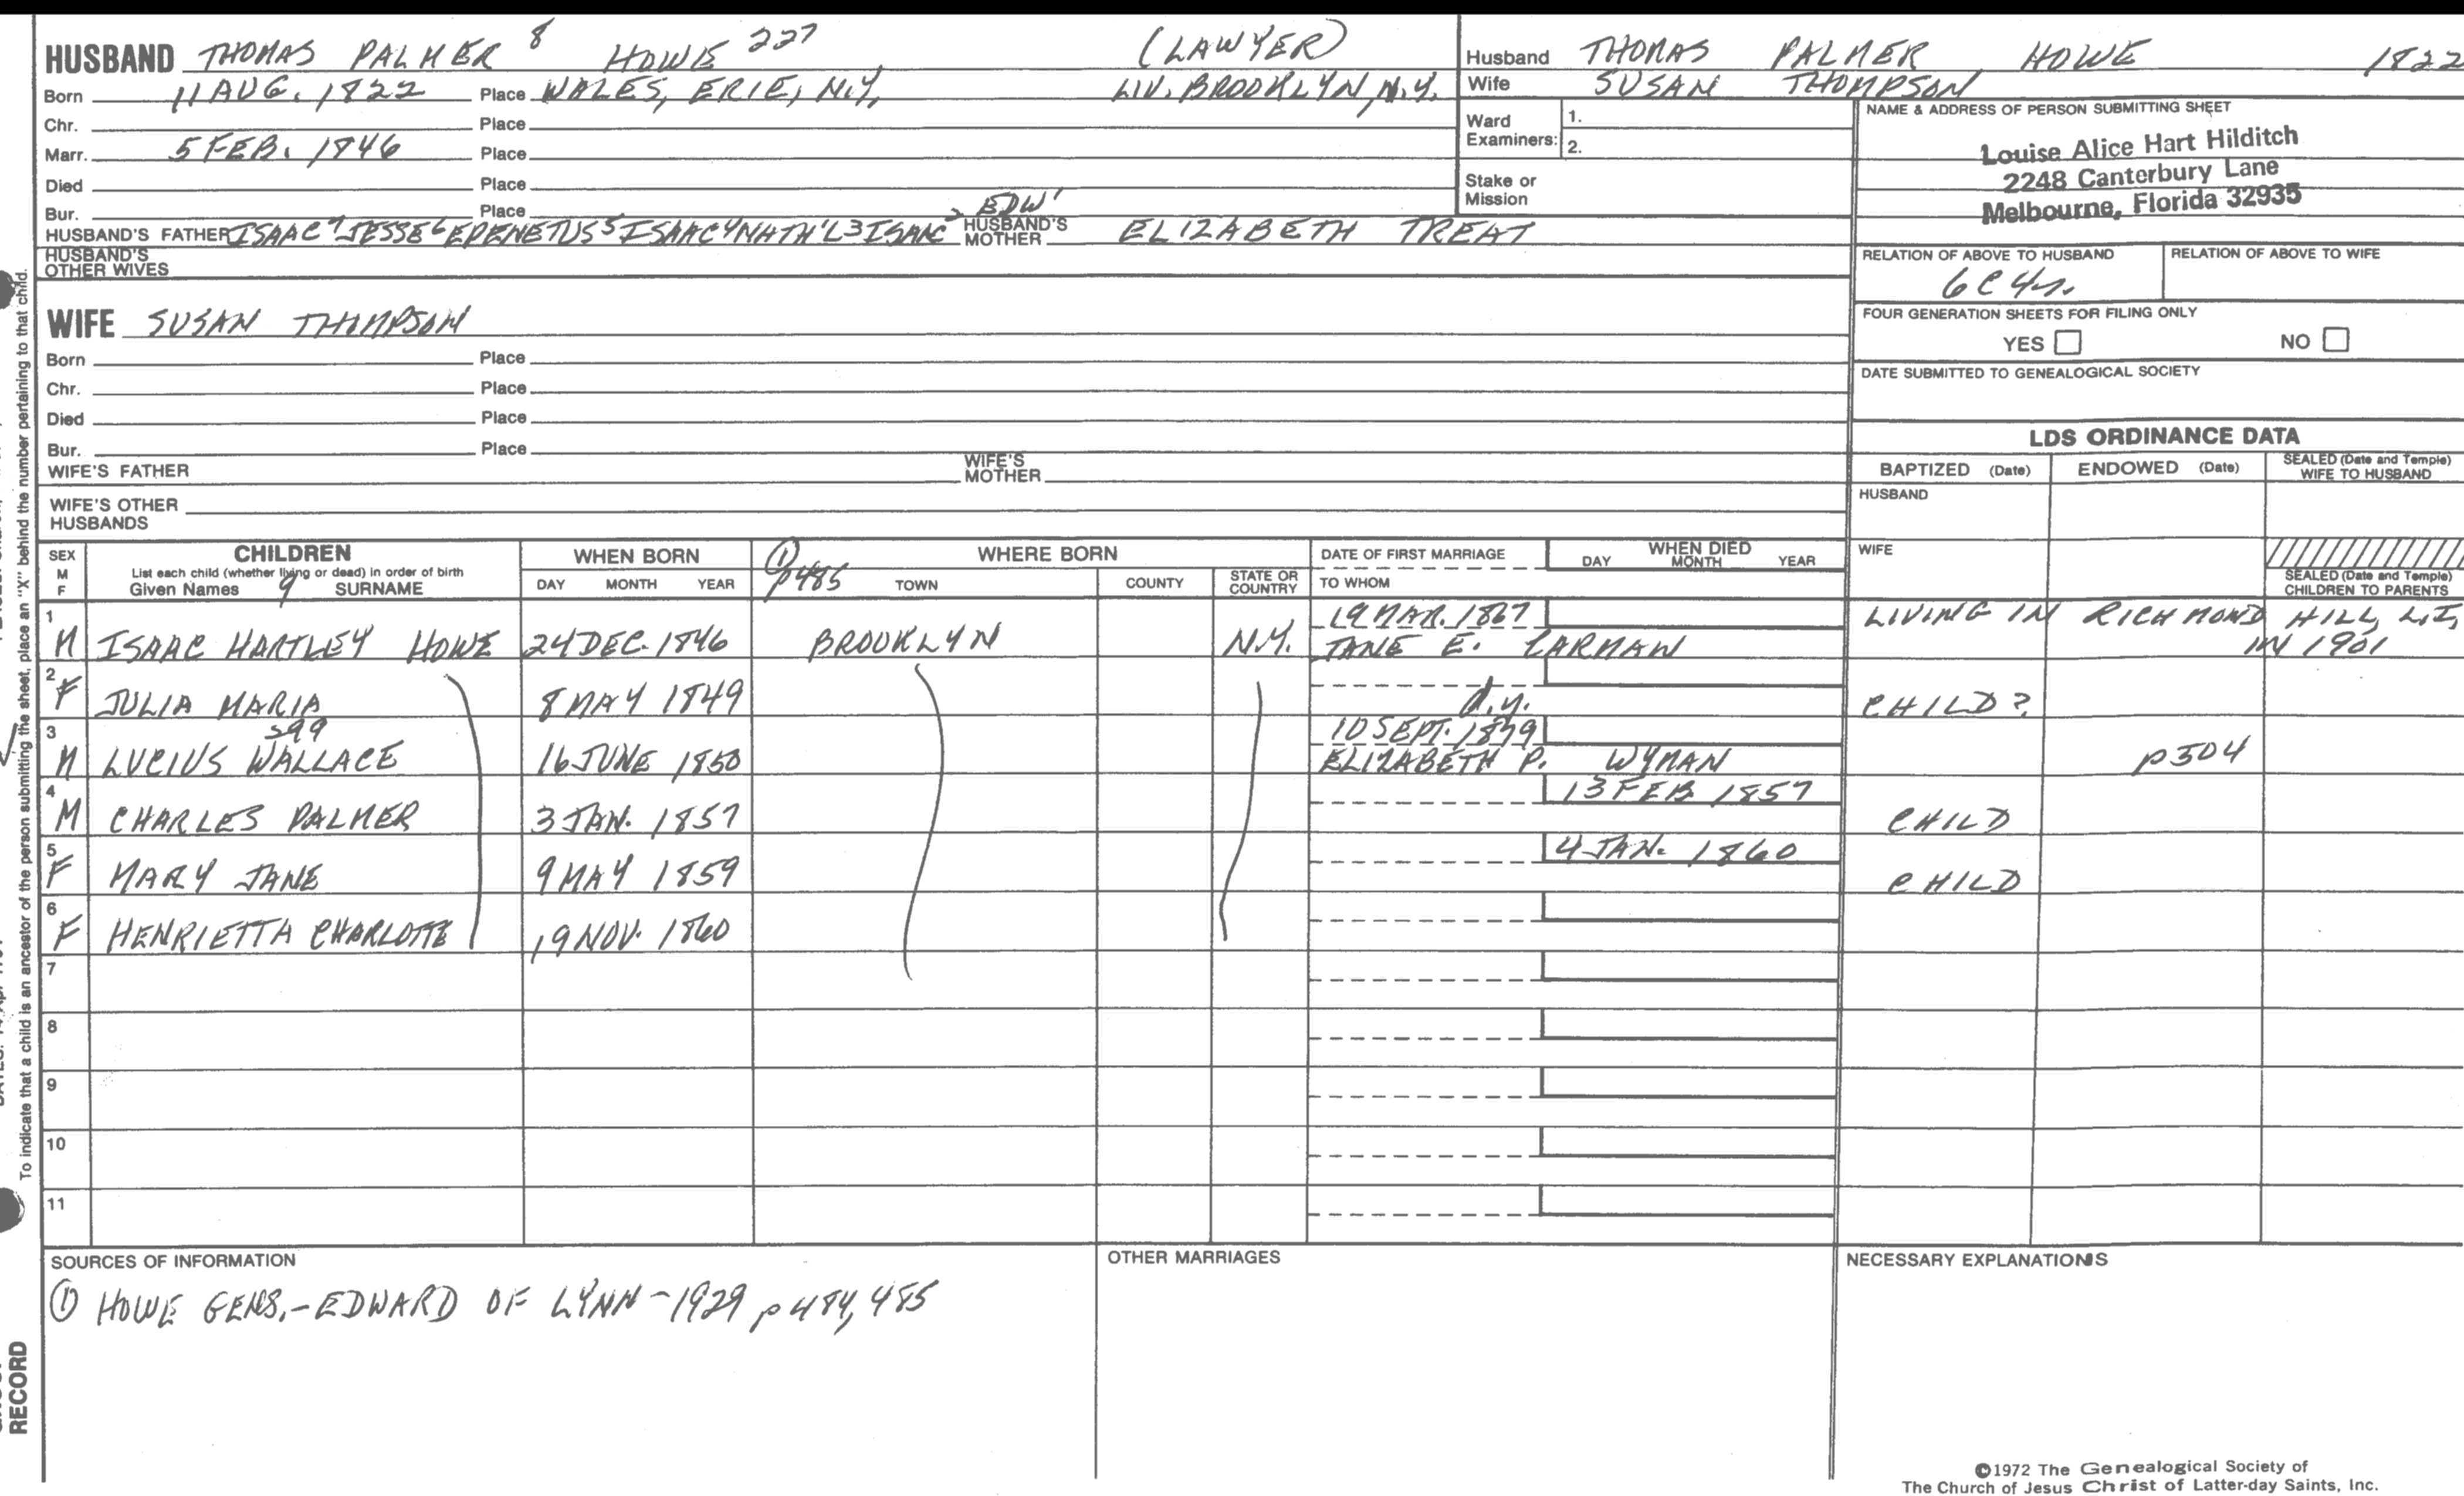 HUSBAND THOMAS PALMER 8 HOWE 227 (LAWYER)
Born 11 AUG. 1822 Place WALES, ERIE, N.Y. LIV. BROOKLYN, N.Y.
Chr. Place
Marr. 5 FEB. 1846 Place
Died Place
Bur. Place
HUSBAND'S FATHER ISAAC 7 JESSE 6 EPENETUS 5 ISAAC 4 NATH'L 3 ISAAC 2 EDW' HUSBAND'S MOTHER ELIZABETH TREAT
HUSBAND'S OTHER WIVES
Husband THOMAS PALMER HOWE 1822
Wife SUSAN THOMPSON
Ward Examiners: 1.
2.
Stake or Mission
NAME & ADDRESS OF PERSON SUBMITTING SHEET
Louise Alice Hart Hilditch
2248 Canterbury Lane
Melbourne, Florida 32935
RELATION OF ABOVE TO HUSBAND RELATION OF ABOVE TO WIFE
6C4r.
FOUR GENERATION SHEETS FOR FILING ONLY
YES NO
DATE SUBMITTED TO GENEALOGICAL SOCIETY
WIFE SUSAN THOMPSON
Born Place
Chr. Place
Died Place
Bur. Place
WIFE'S FATHER WIFE'S MOTHER
WIFE'S OTHER HUSBANDS
LDS ORDINANCE DATA
BAPTIZED (Date) ENDOWED (Date) SEALED (Date and Temple) WIFE TO HUSBAND
HUSBAND
WIFE
SEALED (Date and Temple) CHILDREN TO PARENTS
SEX M F
CHILDREN
List each child (whether living or dead) in order of birth
Given Names 9 SURNAME
WHEN BORN
DAY MONTH YEAR
① p485
WHERE BORN
TOWN COUNTY STATE OR COUNTRY
DATE OF FIRST MARRIAGE
TO WHOM
WHEN DIED
DAY MONTH YEAR
1 M ISAAC HARTLEY HOWE 24 DEC. 1846 BROOKLYN N.Y. 19 MAR. 1867 JANE E. CARMAN LIVING IN RICHMOND HILL, L.I, IN 1901
2 F JULIA MARIA 8 MAY 1849 d.y. CHILD?
3 M LUCIUS WALLACE 399 16 JUNE 1850 10 SEPT. 1879 ELIZABETH P. WYMAN p504
4 M CHARLES PALMER 3 JAN. 1857 13 FEB 1857 CHILD
5 F MARY JANE 9 MAY 1859 4 JAN. 1860 CHILD
6 F HENRIETTA CHARLOTTE 19 NOV. 1860
7
8
9
10
11
SOURCES OF INFORMATION
① HOWE GENS.-EDWARD OF LYNN-1929 p 484, 485
OTHER MARRIAGES
NECESSARY EXPLANATIONS
To indicate that a child is an ancestor of the person submitting the sheet, place an "X" behind the number pertaining to that child.
RECORD
©1972 The Genealogical Society of
The Church of Jesus Christ of Latter-day Saints, Inc.